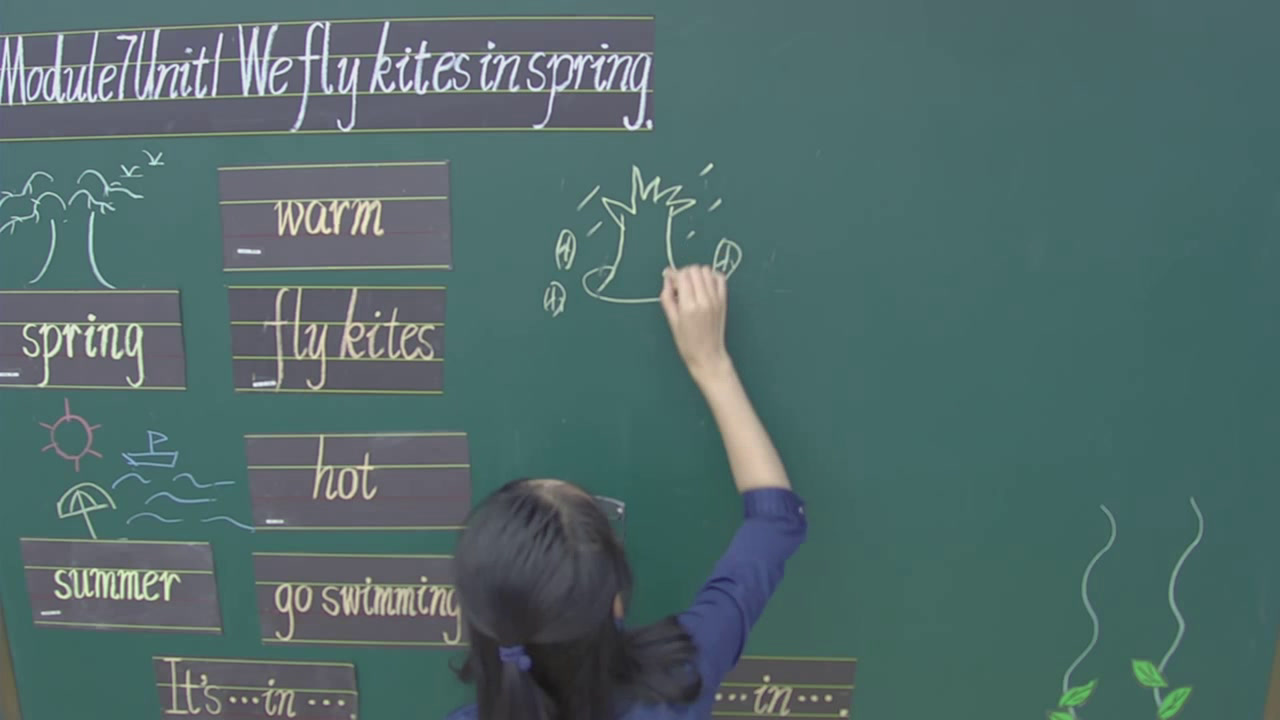 Module7Unit1 We fly kites in spring.
warm
spring
fly kites
hot
summer
go swimming
It's...in ....
...in ....